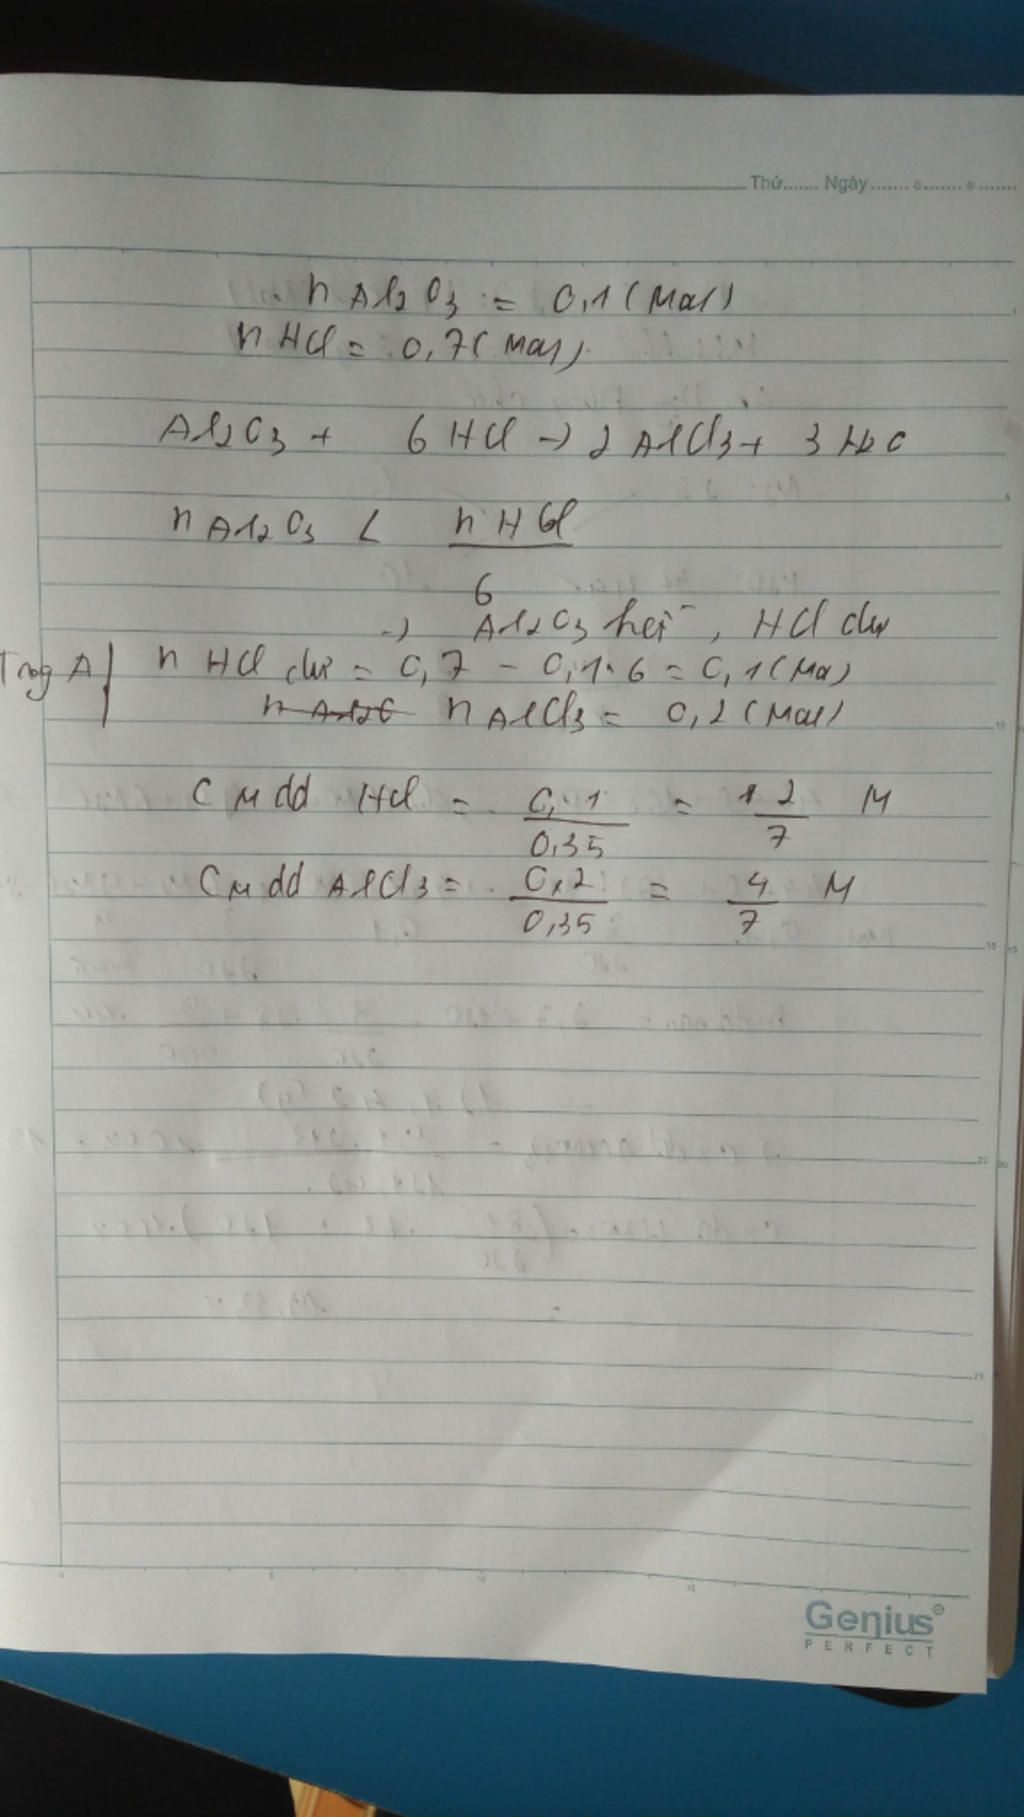 Thứ....... Ngày....... o....... o.......
n Al2O3 = 0,1 (mol)
n HCl = 0,7 (mol)
Al2O3 + 6 HCl -> 2 AlCl3 + 3 H2O
n Al2O3 < n HCl
6
-> Al2O3 hết, HCl dư
Trog A n HCl dư = 0,7 - 0,1.6 = 0,1 (mol)
n AlCl3 = 0,2 (mol)
CM dd HCl = 0,1 / 0,35 = 2 / 7 M
CM dd AlCl3 = 0,2 / 0,35 = 4 / 7 M
Genius
PERFECT